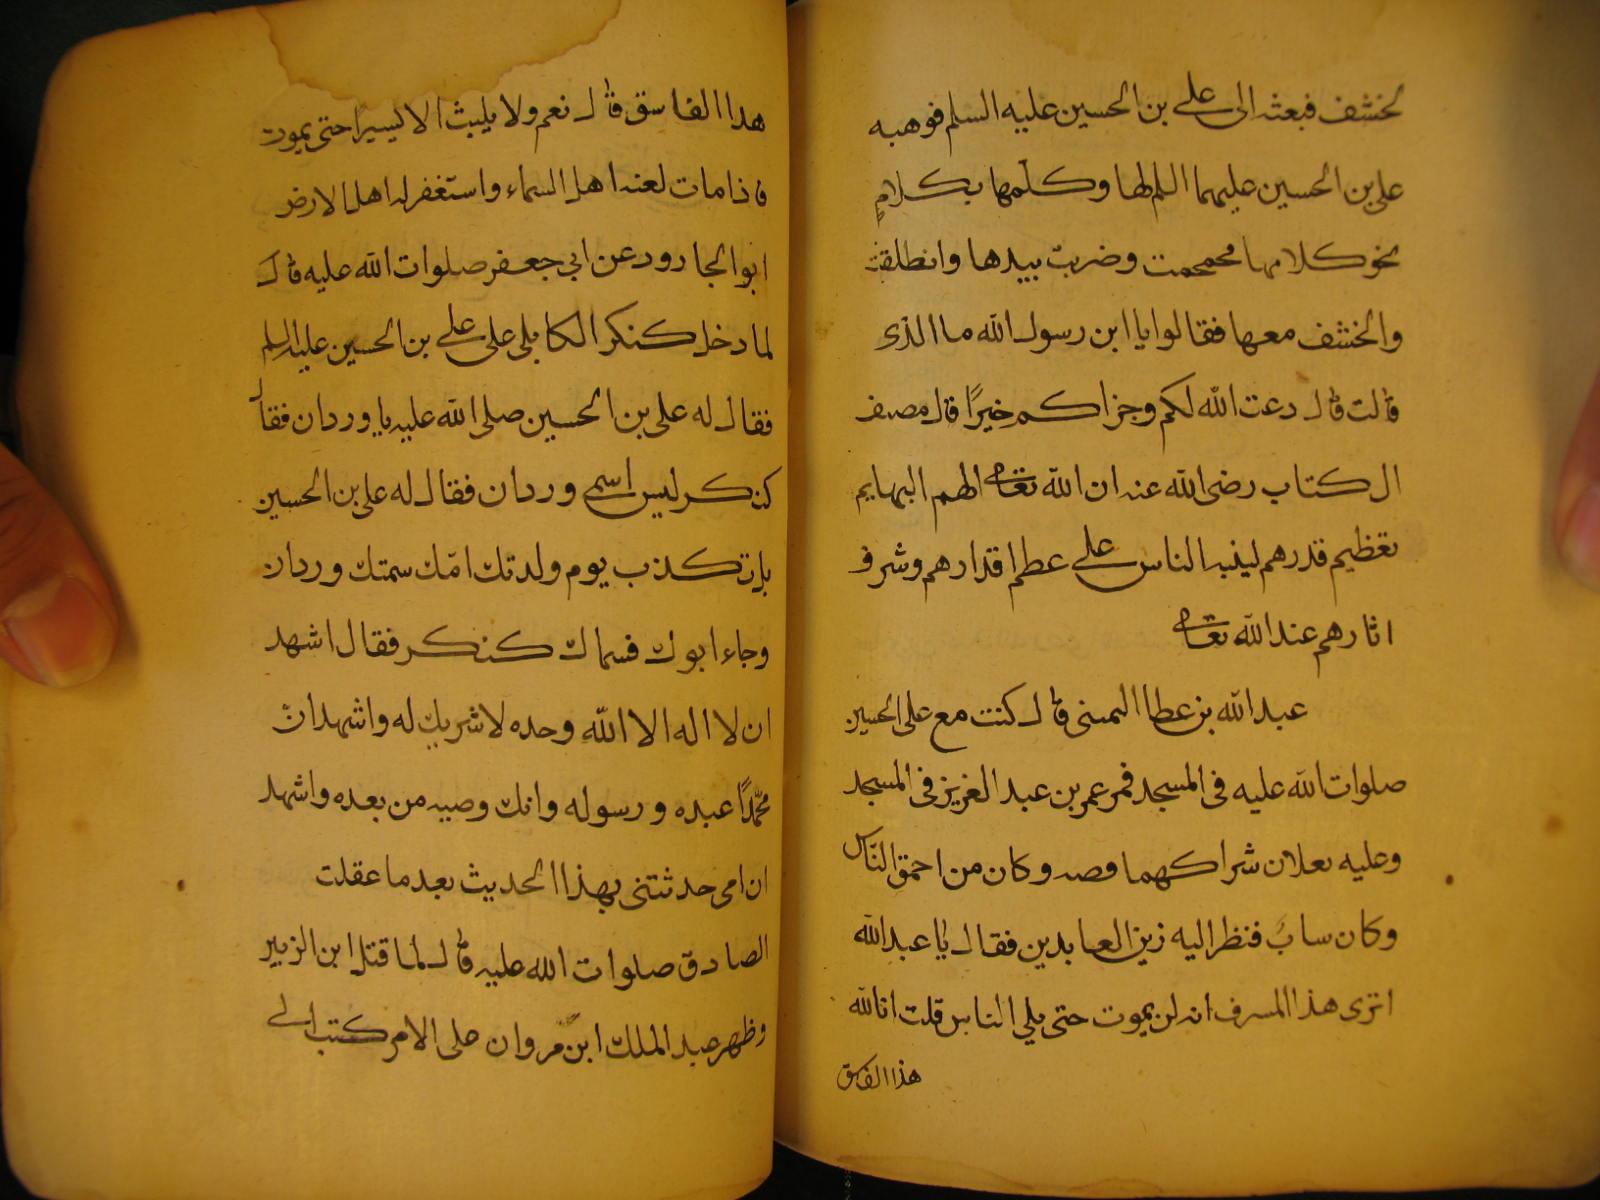 الخشف فبعثه الى على بن الحسين عليه السلم فوهبه
على بن الحسين عليهما السلم لها وكلّمها بكلامٍ
نحو كلامها فحمحمت وضربت بيدها وانطلقت
والخشف معها فقالوا يا ابن رسول الله ما الذى
قالت قال دعت الله لكم وجزاكم خيرًا قال مصنف
الكتاب رضى الله عنه ان الله تعالى الهم البهايم
تعظيم قدرهم لينبه الناس على عظم اقدارهم وشرف
اثارهم عند الله تعالى
عبد الله بن عطا التميمى قال كنت مع على الحسين
صلوات الله عليه فى المسجد فمر عمر بن عبد العزيز فى المسجد
وعليه نعلان شراكهما فضه وكان من احمق الناس
وكان ساب فنظر اليه زين العابدين فقال يا عبد الله
اترى هذا المسرف انه لن يموت حتى يلي الناس قلت انا لله
هذا الفاسق
هذا الفاسق قال نعم ولا يلبث الا يسيرا حتى يموت
فاذا مات لعنه اهل السماء واستغفر له اهل الارض
ابو الجارود عن ابي جعفر صلوات الله عليه قال
لما دخل كنكر الكابلى على على بن الحسين عليه السلم
فقال له على بن الحسين صلى الله عليه يا وردان فقال
كنكر ليس اسمى وردان فقال له على بن الحسين
بل تكذب يوم ولدتك امّك سمتك وردان
وجاء ابوك فسماك كنكر فقال اشهد
ان لا اله الا الله وحده لا شريك له واشهد ان
محمّدًا عبده ورسوله وانك وصيه من بعده واشهد
ان امى حدثتنى بهذا الحديث بعد ما عقلت
الصادق صلوات الله عليه قال لما قتل ابن الزبير
وظهر عبد الملك ابن مروان على الامر كتب الى